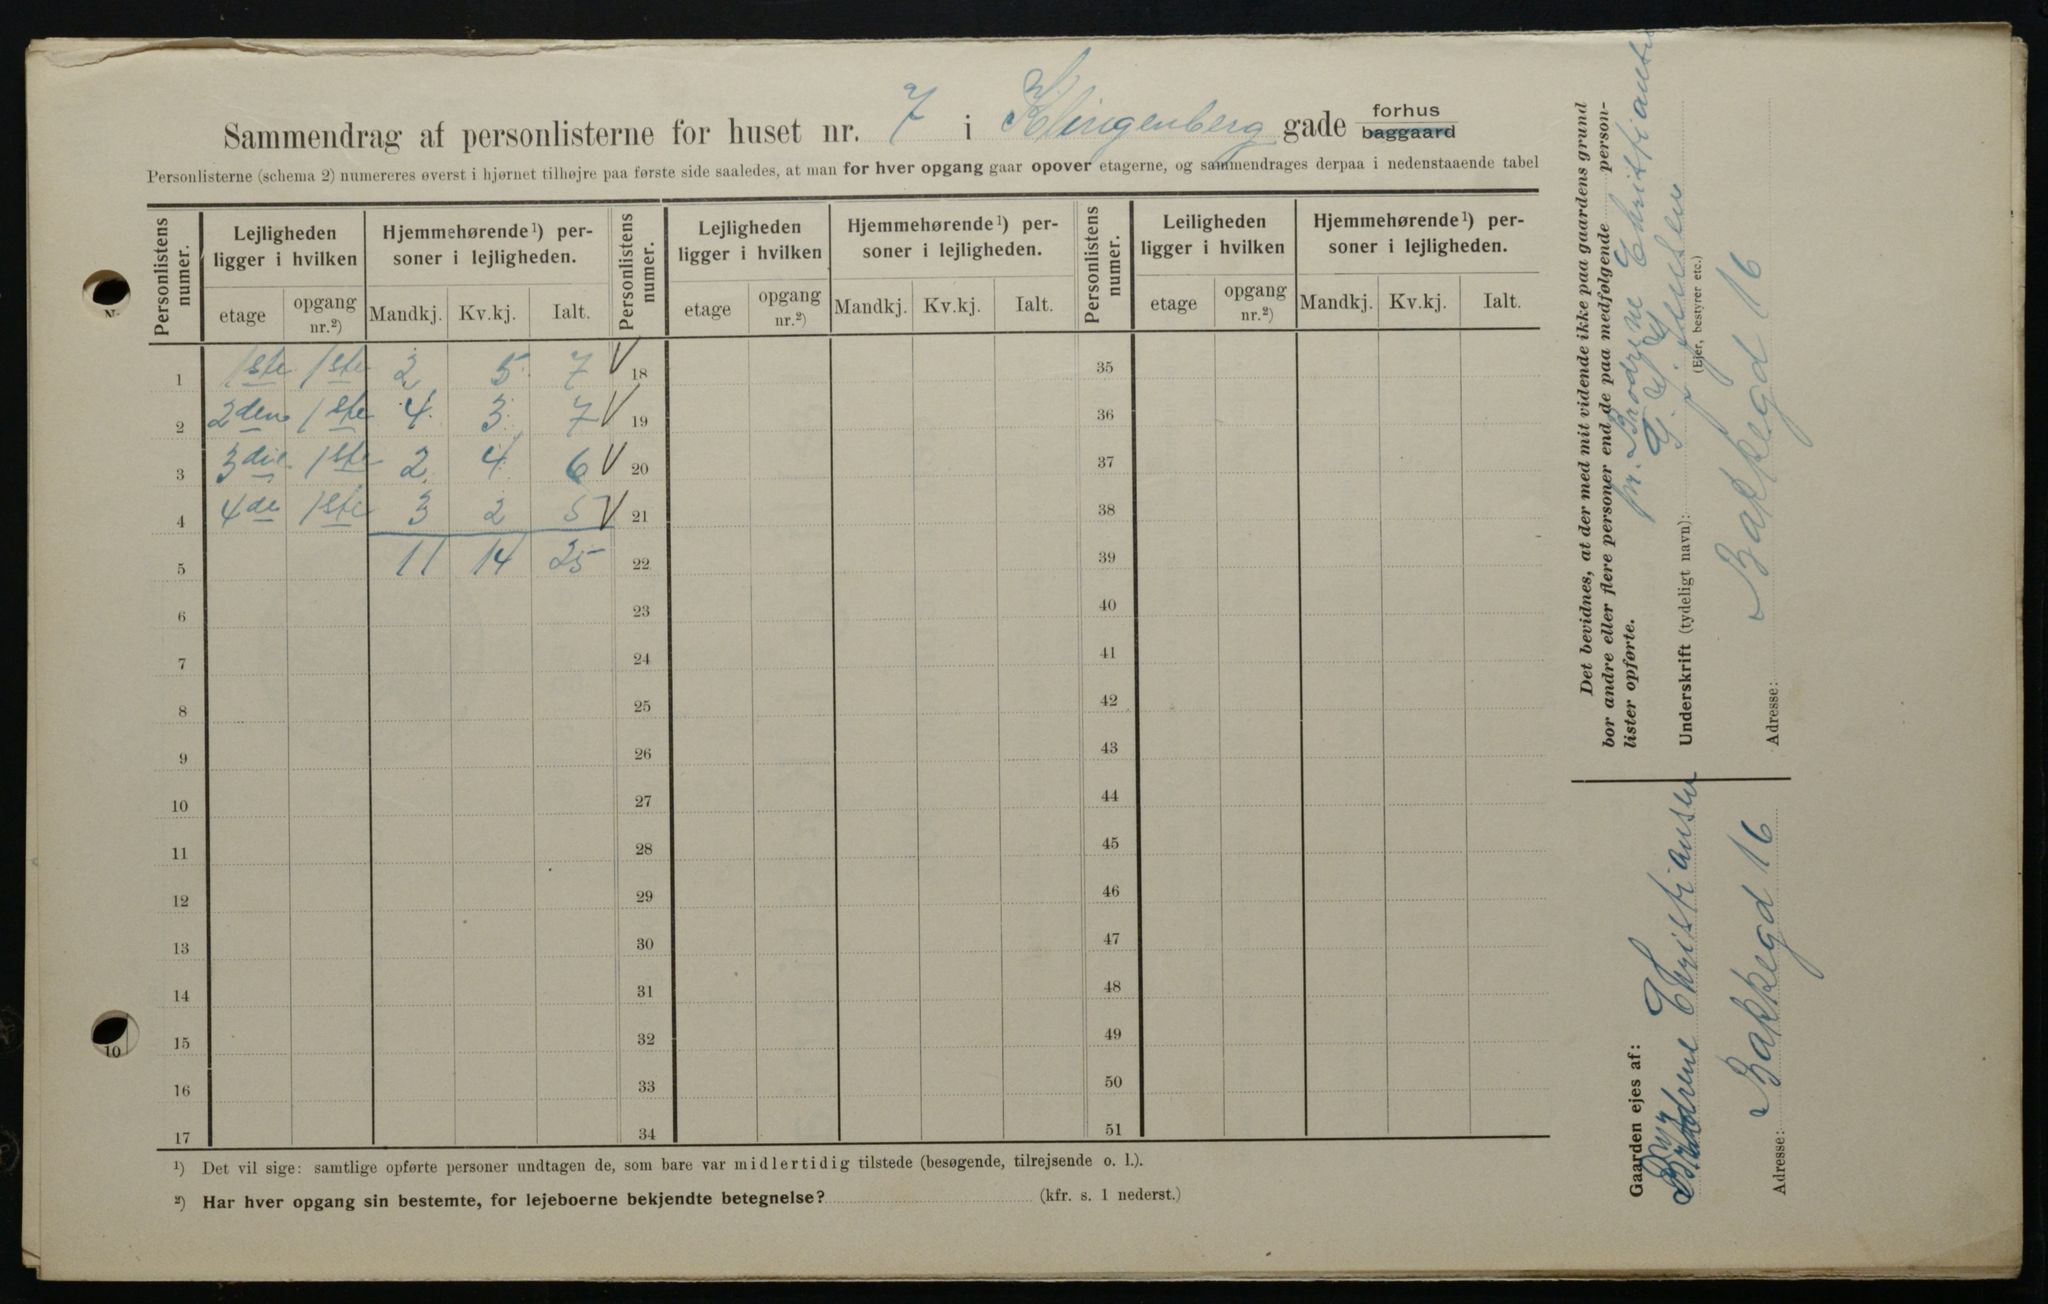 Sammendrag af personlisterne for huset nr. 7 i Klingenberg gade forhus
baggaard
Personlisterne (schema 2) numereres øverst i hjørnet tilhøjre paa første side saaledes, at man for hver opgang gaar opover etagerne, og sammendrages derpaa i nedenstaaende tabel
Personlistens numer.
Lejligheden ligger i hvilken
Hjemmehørende¹) personer i lejligheden.
Personlistens numer.
Lejligheden ligger i hvilken
Hjemmehørende¹) personer i lejligheden.
Personlistens numer.
Leiligheden ligger i hvilken
Hjemmehørende¹) personer i lejligheden.
etage opgang nr.²) Mandkj. Kv.kj. Ialt. etage opgang nr.²) Mandkj. Kv.kj. Ialt. etage opgang nr.²) Mandkj. Kv.kj. Ialt.
1 1ste 1ste 2 5 7 18 35
2 2den 1ste 4 3 7 19 36
3 3die 1ste 2 4 6 20 37
4 4de 1ste 3 2 5 21 38
5 11 14 25 22 39
6 23 40
7 24 41
8 25 42
9 26 43
10 27 44
11 28 45
12 29 46
13 30 47
14 31 48
15 32 49
16 33 50
17 34 51
¹) Det vil sige: samtlige opførte personer undtagen de, som bare var midlertidig tilstede (besøgende, tilrejsende o. l.).
²) Har hver opgang sin bestemte, for lejeboerne bekjendte betegnelse? (kfr. s. 1 nederst.)
Det bevidnes, at der med mit vidende ikke paa gaardens grund
bor andre eller flere personer end de paa medfølgende person-
lister opførte.
pr. Brødrene Christiansen
Underskrift (tydeligt navn):
(Ejer, bestyrer etc.)
Bakkegd 16
Adresse:
Gaarden ejes af:
Brødrene Christiansen
Bakkegd 16
Adresse:
10